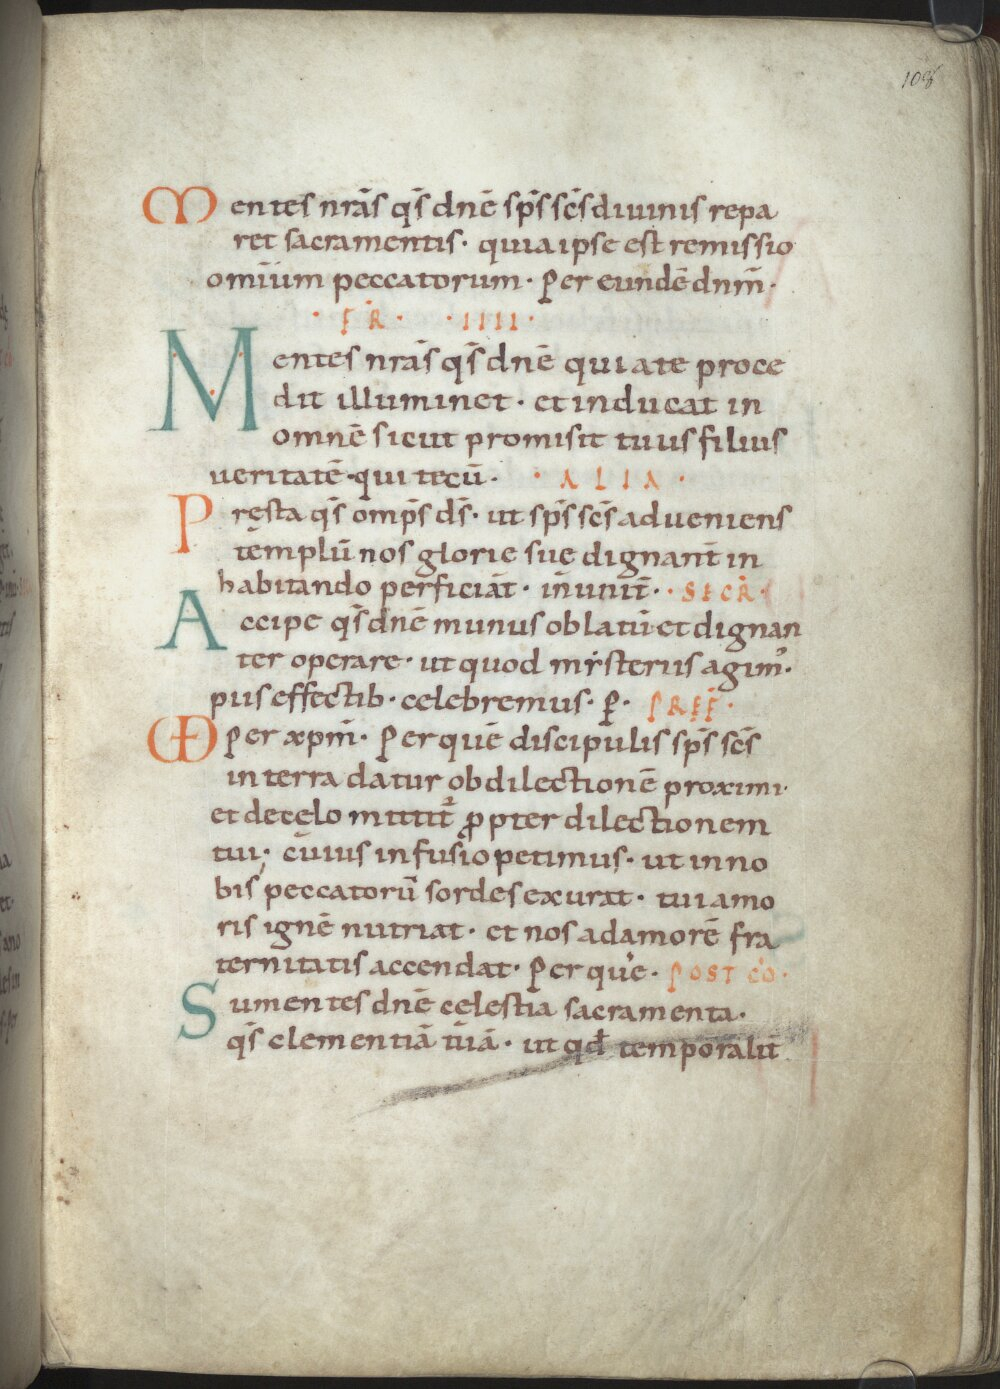 108
Mentes nr̄as q̄s dnē sp̄s sc̄s diuinis repa
ret sacramentis· quia ipse est remissio
omīum peccatorum· ꝑ er eundē dnm̄·
· FR̄ · · IIII ·
Mentes nr̄as q̄s dnē qui a te proce
dit illuminet · et inducat in
omnē sicut promisit tuus filius
ueritatē· qui tecū· · ALIA ·
Pręsta q̄s omp̄s ds̄· ut sp̄s sc̄s adueniens
templū nos glorie suę dignant̄ in
habitando perficiat̄ · in̄ unit̄ · · SECR̄ ·
Accipe q̄s dnē munus oblatū· et dignan
ter operare· ut quod mẏsteriis agim᾽·
piis effectib · celebremus · ꝑ · PREF̄ ·
UD ꝑer xpm̄· ꝑer quē discipulis sp̄s sc̄s
in terra datur ob dilectionē proximi·
et de cęlo mittit᷑ ꝓpter dilectionem
tui; cuius infusio petimus· ut in no
bis peccatorū sordes exurat · tui amo
ris ignē nutriat · et nos ad amorē fra
ternitatis accendat· ꝑer quē · POST CŌ ·
Sumentes dnē cęlestia sacramenta·
q̄s clementiā tuā · ut qd̄ temporalit̄